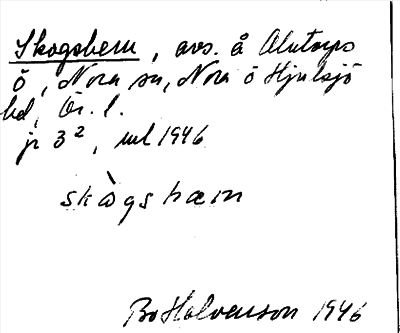 Skogshem, avs. å Alntorps
ö, Nora sn, Nora o Hjulsjö
bd, Ör. l.
jr 3², uul 1946
skògshæm
Bo Halvarson 1946